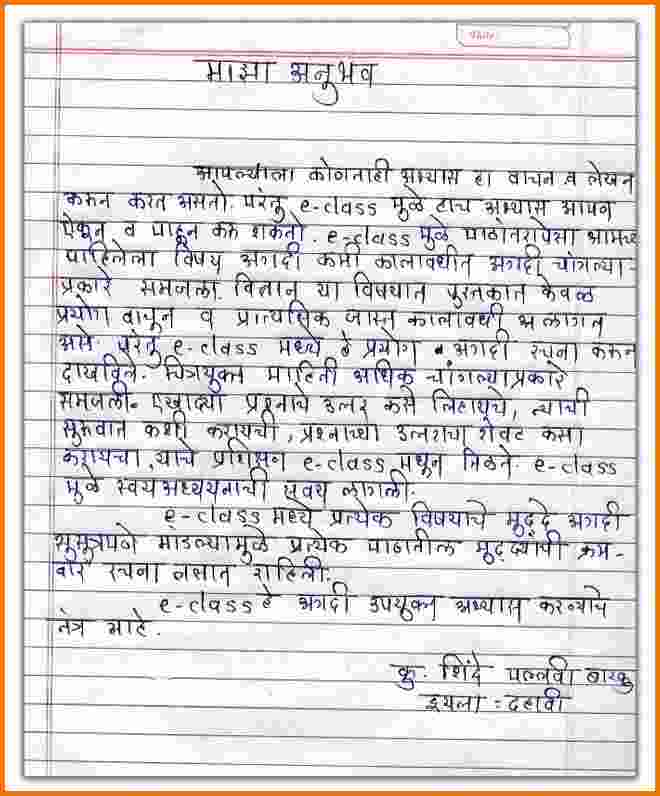 माझा अनुभव
आपल्याला कोणताही अभ्यास हा वाचन व लेखन
करून करत असतो. परंतु e-class मुळे हाच अभ्यास आपण
ऐकून व पाहून करू शकतो. e-class मुळे पाठांतरापेक्षा आमच्
पाहिलेला विषय अगदी कमी कालावधीत अगदी चांगल्या-
प्रकारे समजला. विज्ञान या विषयात पुस्तकात केवळ
प्रयोग वाचून व प्रात्यक्षिक जास्त कालावधी लागत
असे. परंतु e-class मध्ये हे प्रयोग अगदी रचना करून
दाखविले. चित्रयुक्त माहिती अधिक चांगल्याप्रकारे
समजली. एखाद्या प्रश्नाचे उत्तर कसे लिहायचे, त्याची
सुरुवात कशी करायची, प्रश्नाच्या उत्तराचा शेवट कसा
करायचा, याचे प्रशिक्षण e-class मधून मिळते. e-class
मुळे स्वयंअध्ययनाची सवय लागली.
e-class मध्ये प्रत्येक विषयाचे मुद्दे अगदी
सुसुत्रपणे मांडल्यामुळे प्रत्येक पाठातील मुद्द्यांची क्रम-
वार रचना लक्षात राहिली.
e-class हे अगदी उपयुक्त अभ्यास करण्याचे
तंत्र आहे.
कु. शिंदे पल्लवी बारकु
इयत्ता : दहावी